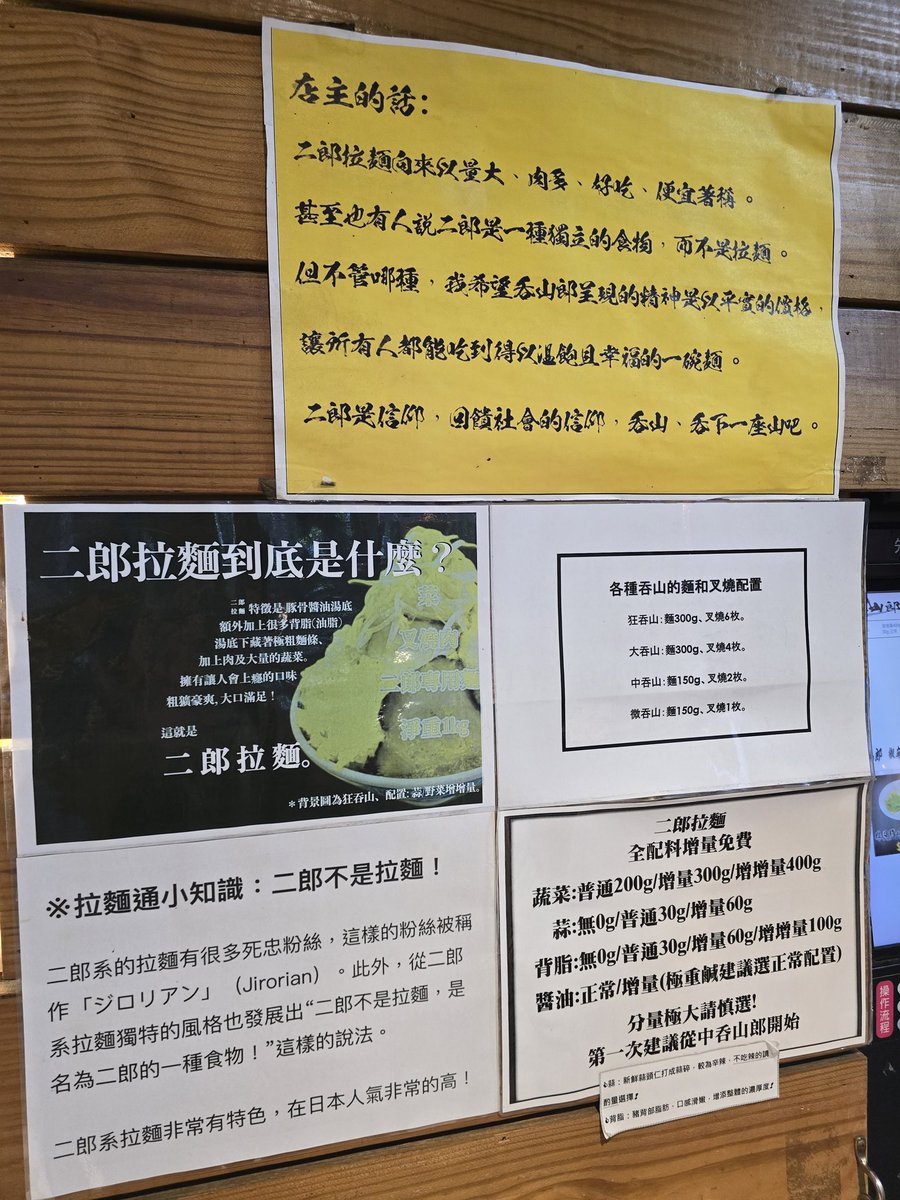 店主的話：
二郎拉麵向來以量大、肉多、好吃、便宜著稱。
甚至也有人說二郎是一種獨立的食物，而不是拉麵。
但不管哪種，我希望吞山郎呈現的精神是以平實的價格，
讓所有人都能吃到得以溫飽且幸福的一碗麵。
二郎是信仰，回饋社會的信仰，吞山、吞下一座山吧。
二郎拉麵到底是什麼？
二郎拉麵 特徵是 豚骨醬油湯底
額外加上很多背脂(油脂)
湯底下藏著極粗麵條、
加上肉及大量的蔬菜。
擁有讓人會上癮的口味
粗獷豪爽, 大口滿足！
這就是
二郎拉麵。
菜
叉燒肉
二郎專用麵
淨重1kg
＊背景圖為狂吞山、配置: 蒜/野菜增增量。
各種吞山的麵和叉燒配置
狂吞山：麵300g、叉燒6枚。
大吞山：麵300g、叉燒4枚。
中吞山：麵150g、叉燒2枚。
微吞山：麵150g、叉燒1枚。
※拉麵通小知識：二郎不是拉麵！
二郎系的拉麵有很多死忠粉絲，這樣的粉絲被稱
作「ジロリアン」（Jirorian）。此外，從二郎
系拉麵獨特的風格也發展出“二郎不是拉麵，是
名為二郎的一種食物！”這樣的說法。
二郎系拉麵非常有特色，在日本人氣非常的高！
二郎拉麵
全配料增量免費
蔬菜:普通200g/增量300g/增增量400g
蒜:無0g/普通30g/增量60g
背脂:無0g/普通30g/增量60g/增增量100g
醬油:正常/增量(極重鹹建議選正常配置)
分量極大請慎選!
第一次建議從中吞山郎開始
蒜：新鮮蒜頭仁打成蒜碎，較為辛辣，不吃辣的請
酌量選擇！
背脂：豬背部脂肪，口感滑嫩，增添整體的濃厚度！
操作流程